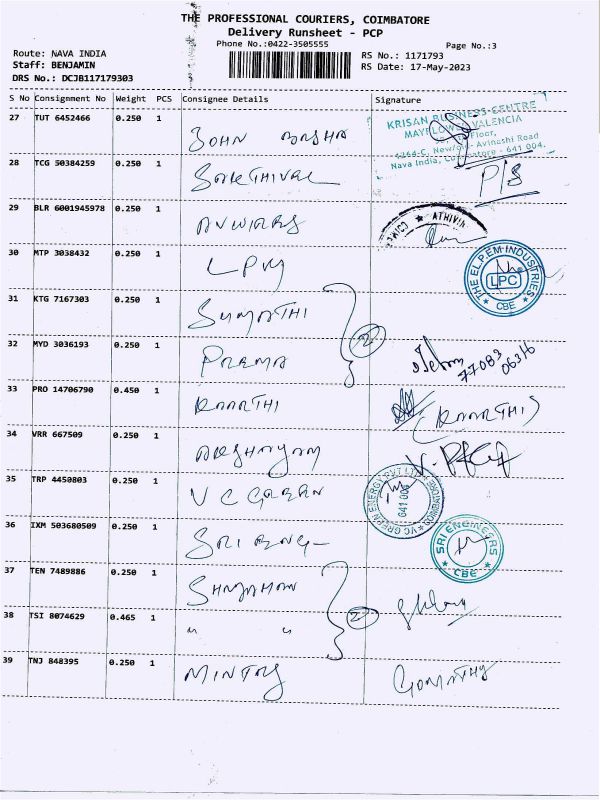 THE PROFESSIONAL COURIERS, COIMBATORE
Delivery Runsheet - PCP
Phone No.:0422-3505555
Page No.:3
Route: NAVA INDIA
RS No.: 1171793
Staff: BENJAMIN
RS Date: 17-May-2023
DRS No.: DCJB117179303
S No Consignment No Weight PCS Consignee Details Signature
27 TUT 6452466 0.250 1 JOHN BASHA
KRISAN BUSINESS CENTRE
MAYFLOWER VALENCIA
Floor,
1264-C, New/old- Avinashi Road
Nava India, Coimbatore - 641 004.
28 TCG 50384259 0.250 1 SAKTHIVEL P/S
29 BLR 6001945978 0.250 1
ATHIVA
30 MTP 3038432 0.250 1 LPM
THE EL.P.EM INDUSTRIES
LPC
CBE
31 KTG 7167303 0.250 1 SUMATHI
2
32 MYD 3036193 0.250 1 PREMA
77083
06316
33 PRO 14706790 0.450 1 KAARTHI (KAARTHI)
34 VRR 667509 0.250 1
35 TRP 4450803 0.250 1 VC GREEN
VC GREEN ENERGY PVT LTD
COIMBATORE
641 006
36 IXM 503680509 0.250 1 SRI ENG-
SRI ENGINEERS
CBE
37 TEN 7489886 0.250 1
2
38 TSI 8074629 0.465 1 " "
39 TNJ 848395 0.250 1 MINTRY GOMATHY